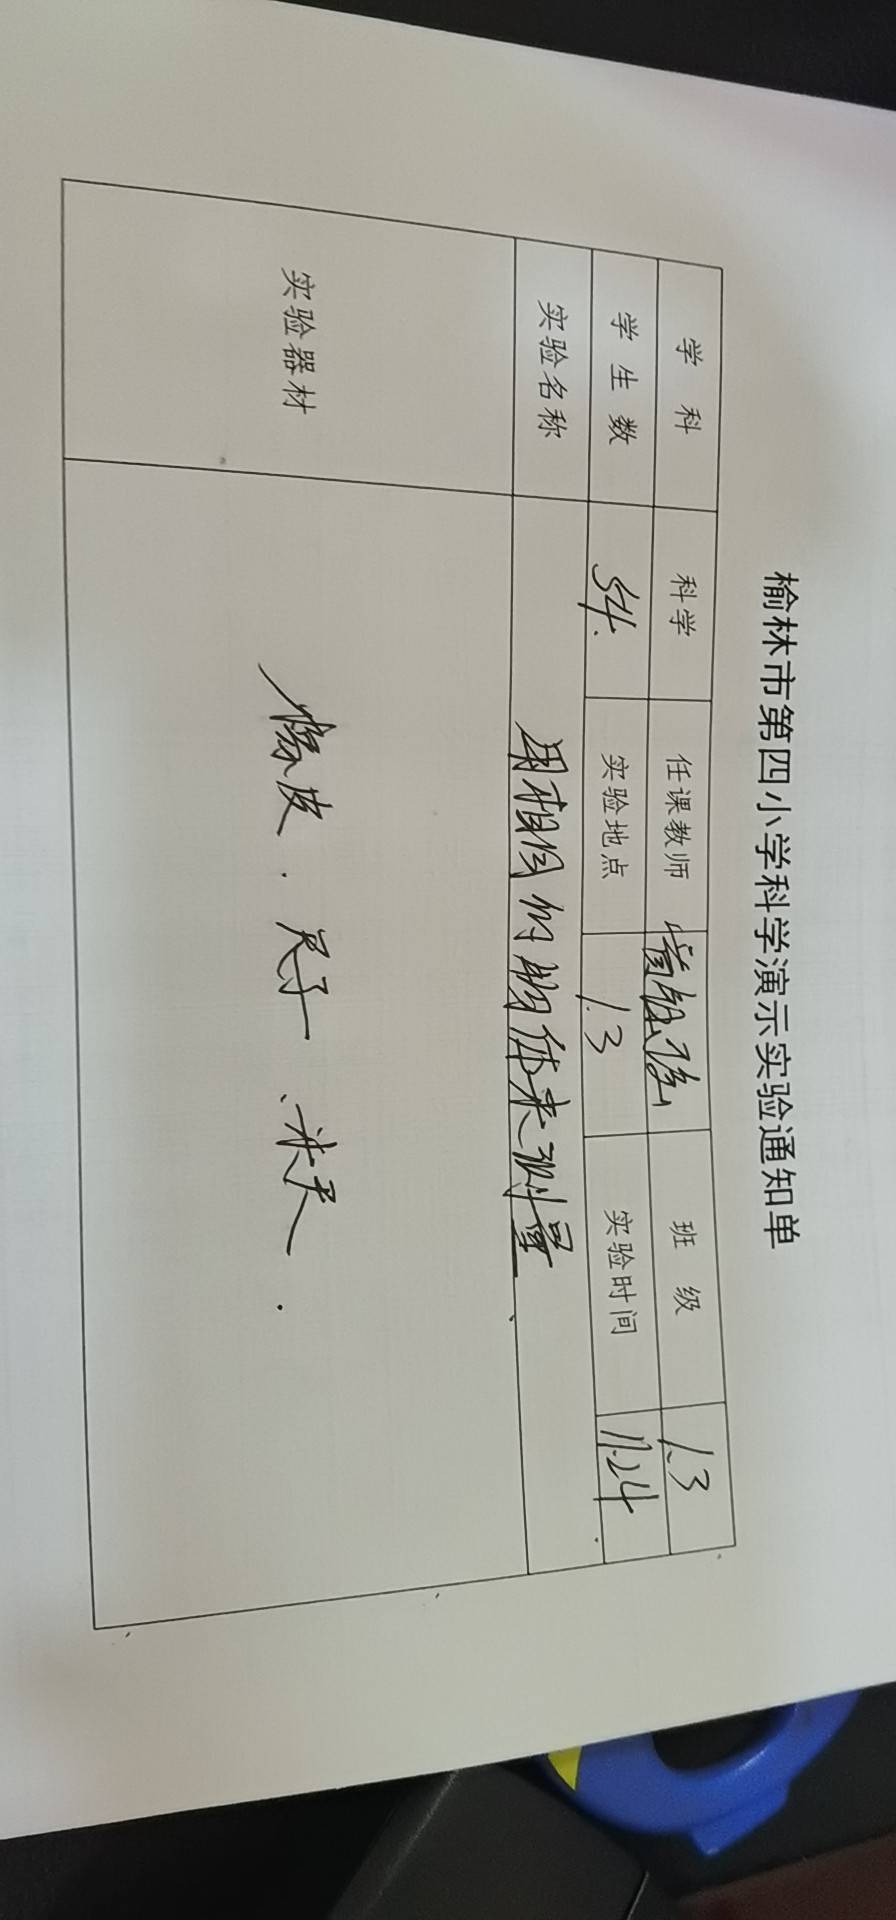 榆林市第四小学科学演示实验通知单
学 科 科学 任课教师 班 级 1.3
学 生 数 54. 实验地点 1.3 实验时间 11.24
实验名称 用相同的物体来测量
实验器材 橡皮. 尺子、米尺.